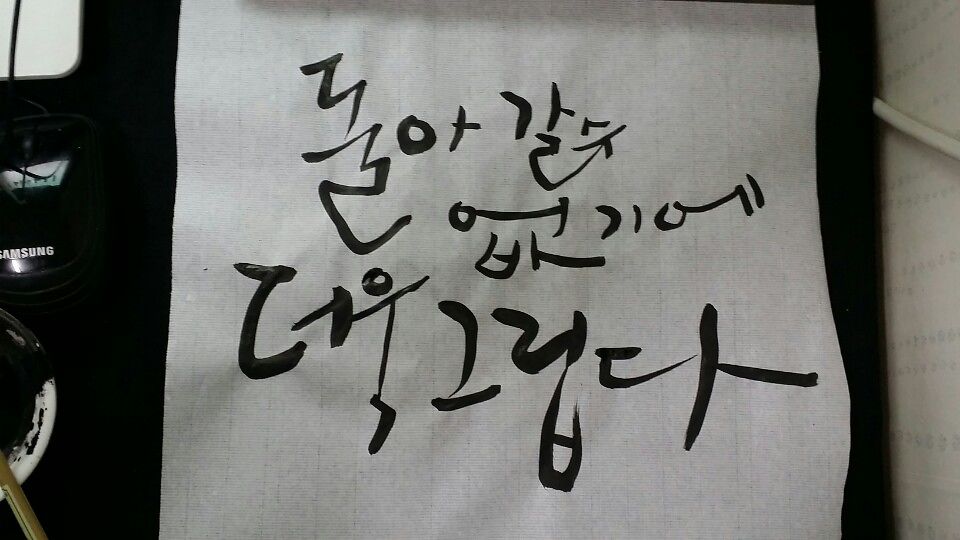 돌아갈 수
없기에
더욱 그립다
SAMSUNG